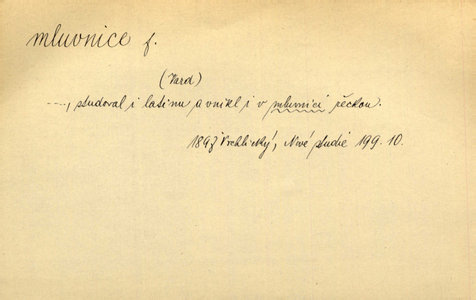 mluvnice f.
(Vard)
...., studoval i latinu a vnikl i v mluvnici řeckou.
1897 Vrchlický, Nové studie 199. 10.